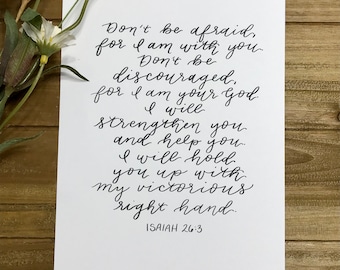 Don't be afraid,
for I am with you.
Don't be
discouraged,
for I am your God.
I will
strengthen you
and help you.
I will hold
you up with
my victorious
right hand.
ISAIAH 26:3